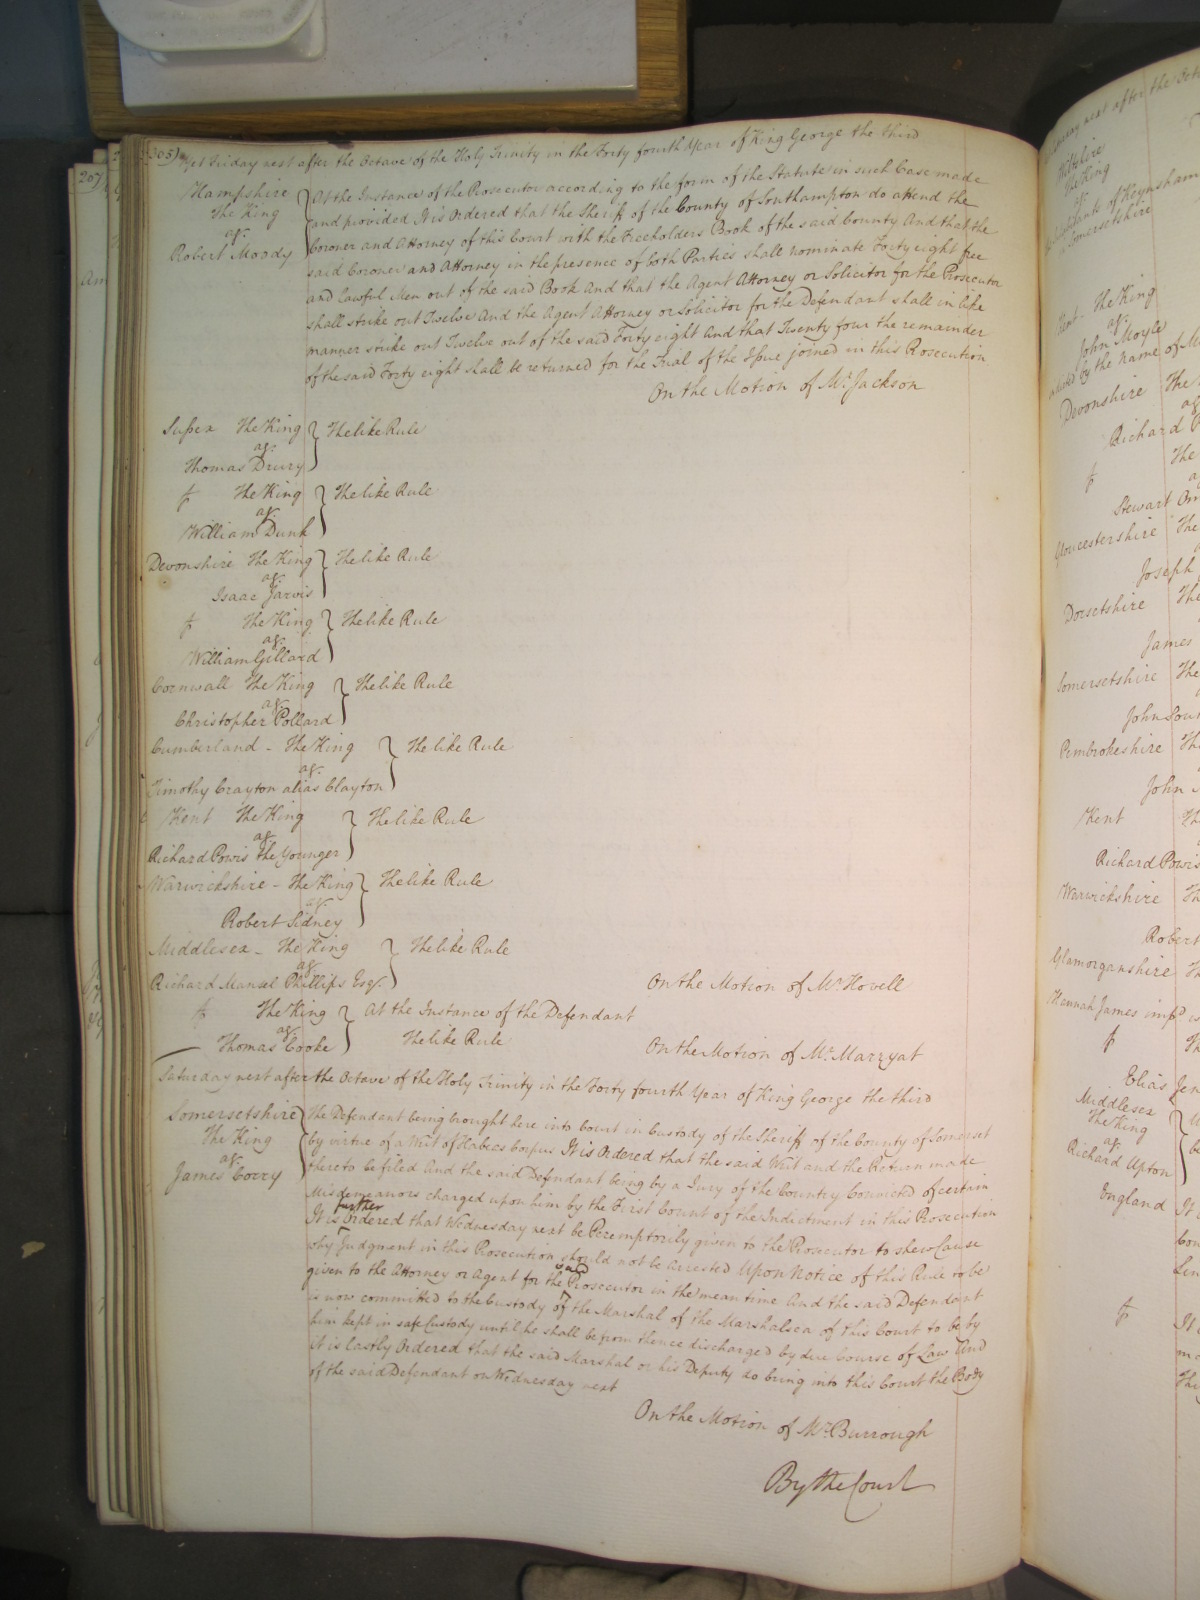 305)
Yet Friday next after the Octave of the Holy Trinity in the Forty fourth Year of King George the third
Hampshire
The King
agt.
Robert Moody
At the Instance of the Prosecutor according to the form of the Statute in such Case made
and provided It is Ordered that the Sheriff of the County of Southampton do attend the
Coroner and Attorney of this Court with the Freeholders Book of the said County And that the
said Coroner and Attorney in the presence of both Parties shall nominate Forty eight free
and lawful Men out of the said Book And that the Agent Attorney or Solicitor for the Prosecutor
shall strike out Twelve And the Agent Attorney or Solicitor for the Defendant shall in like
manner strike out Twelve out of the said Forty eight And that Twenty four the remainder
of the said Forty eight shall be returned for the Trial of the Issue joined in this Prosecution
On the Motion of Mr. Jackson
Sussex The King
agt.
Thomas Drury
The like Rule
The King
agt.
William Dunk
The like Rule
Devonshire The King
agt.
Isaac Jarvis
The like Rule
The King
agt.
William Gillard
The like Rule
Cornwall The King
agt.
Christopher Pollard
The like Rule
Cumberland - The King
agt.
Timothy Crayton alias Clayton
The like Rule
Kent The King
agt.
Richard Powis the Younger
The like Rule
Warwickshire - The King
agt.
Robert Sidney
The like Rule
Middlesex - The King
agt.
Richard Mansel Phillips Esqr.
The like Rule
On the Motion of Mr. Hovell
The King
agt.
Thomas Cooke
At the Instance of the Defendant
The like Rule
On the Motion of Mr. Marryat
Saturday next after the Octave of the Holy Trinity in the Forty fourth Year of King George the third
Somersetshire
The King
agt.
James Corry
The Defendant being brought here into Court in Custody of the Sheriff of the County of Somerset
by virtue of a Writ of Habeas Corpus It is Ordered that the said Writ and the Return made
thereto be filed And the said Defendant being by a Jury of the Country Convicted of certain
Misdemeanors charged upon him by the First Count of the Indictment in this Prosecution
It is further Ordered that Wednesday next be Peremptorily given to the Prosecutor to shew Cause
why Judgment in this Prosecution should not be arrested Upon Notice of this Rule to be
given to the Attorney or Agent for the said Prosecutor in the mean time And the said Defendant
is now committed to the Custody of the Marshal of the Marshalsea of this Court to be by
him kept in safe Custody until he shall be from thence discharged by due Course of Law And
it is lastly Ordered that the said Marshal or his Deputy do bring into this Court the Body
of the said Defendant on Wednesday next
On the Motion of Mr. Burrough
By the Court
207
next after the
Wiltshire
The King
agt.
Inhabitants of Keynsham
in Somersetshire
Kent - The King
agt.
John Moyle
by the name of
Devonshire The
Richard
The
Stewart
Gloucestershire The
Joseph
Dorsetshire The
James
Somersetshire The
John
Pembrokeshire
John
Kent
Richard Powis
Warwickshire
Robert
Glamorganshire
Hannah James
Elias
Middlesex
The King
agt.
Richard Upton
England